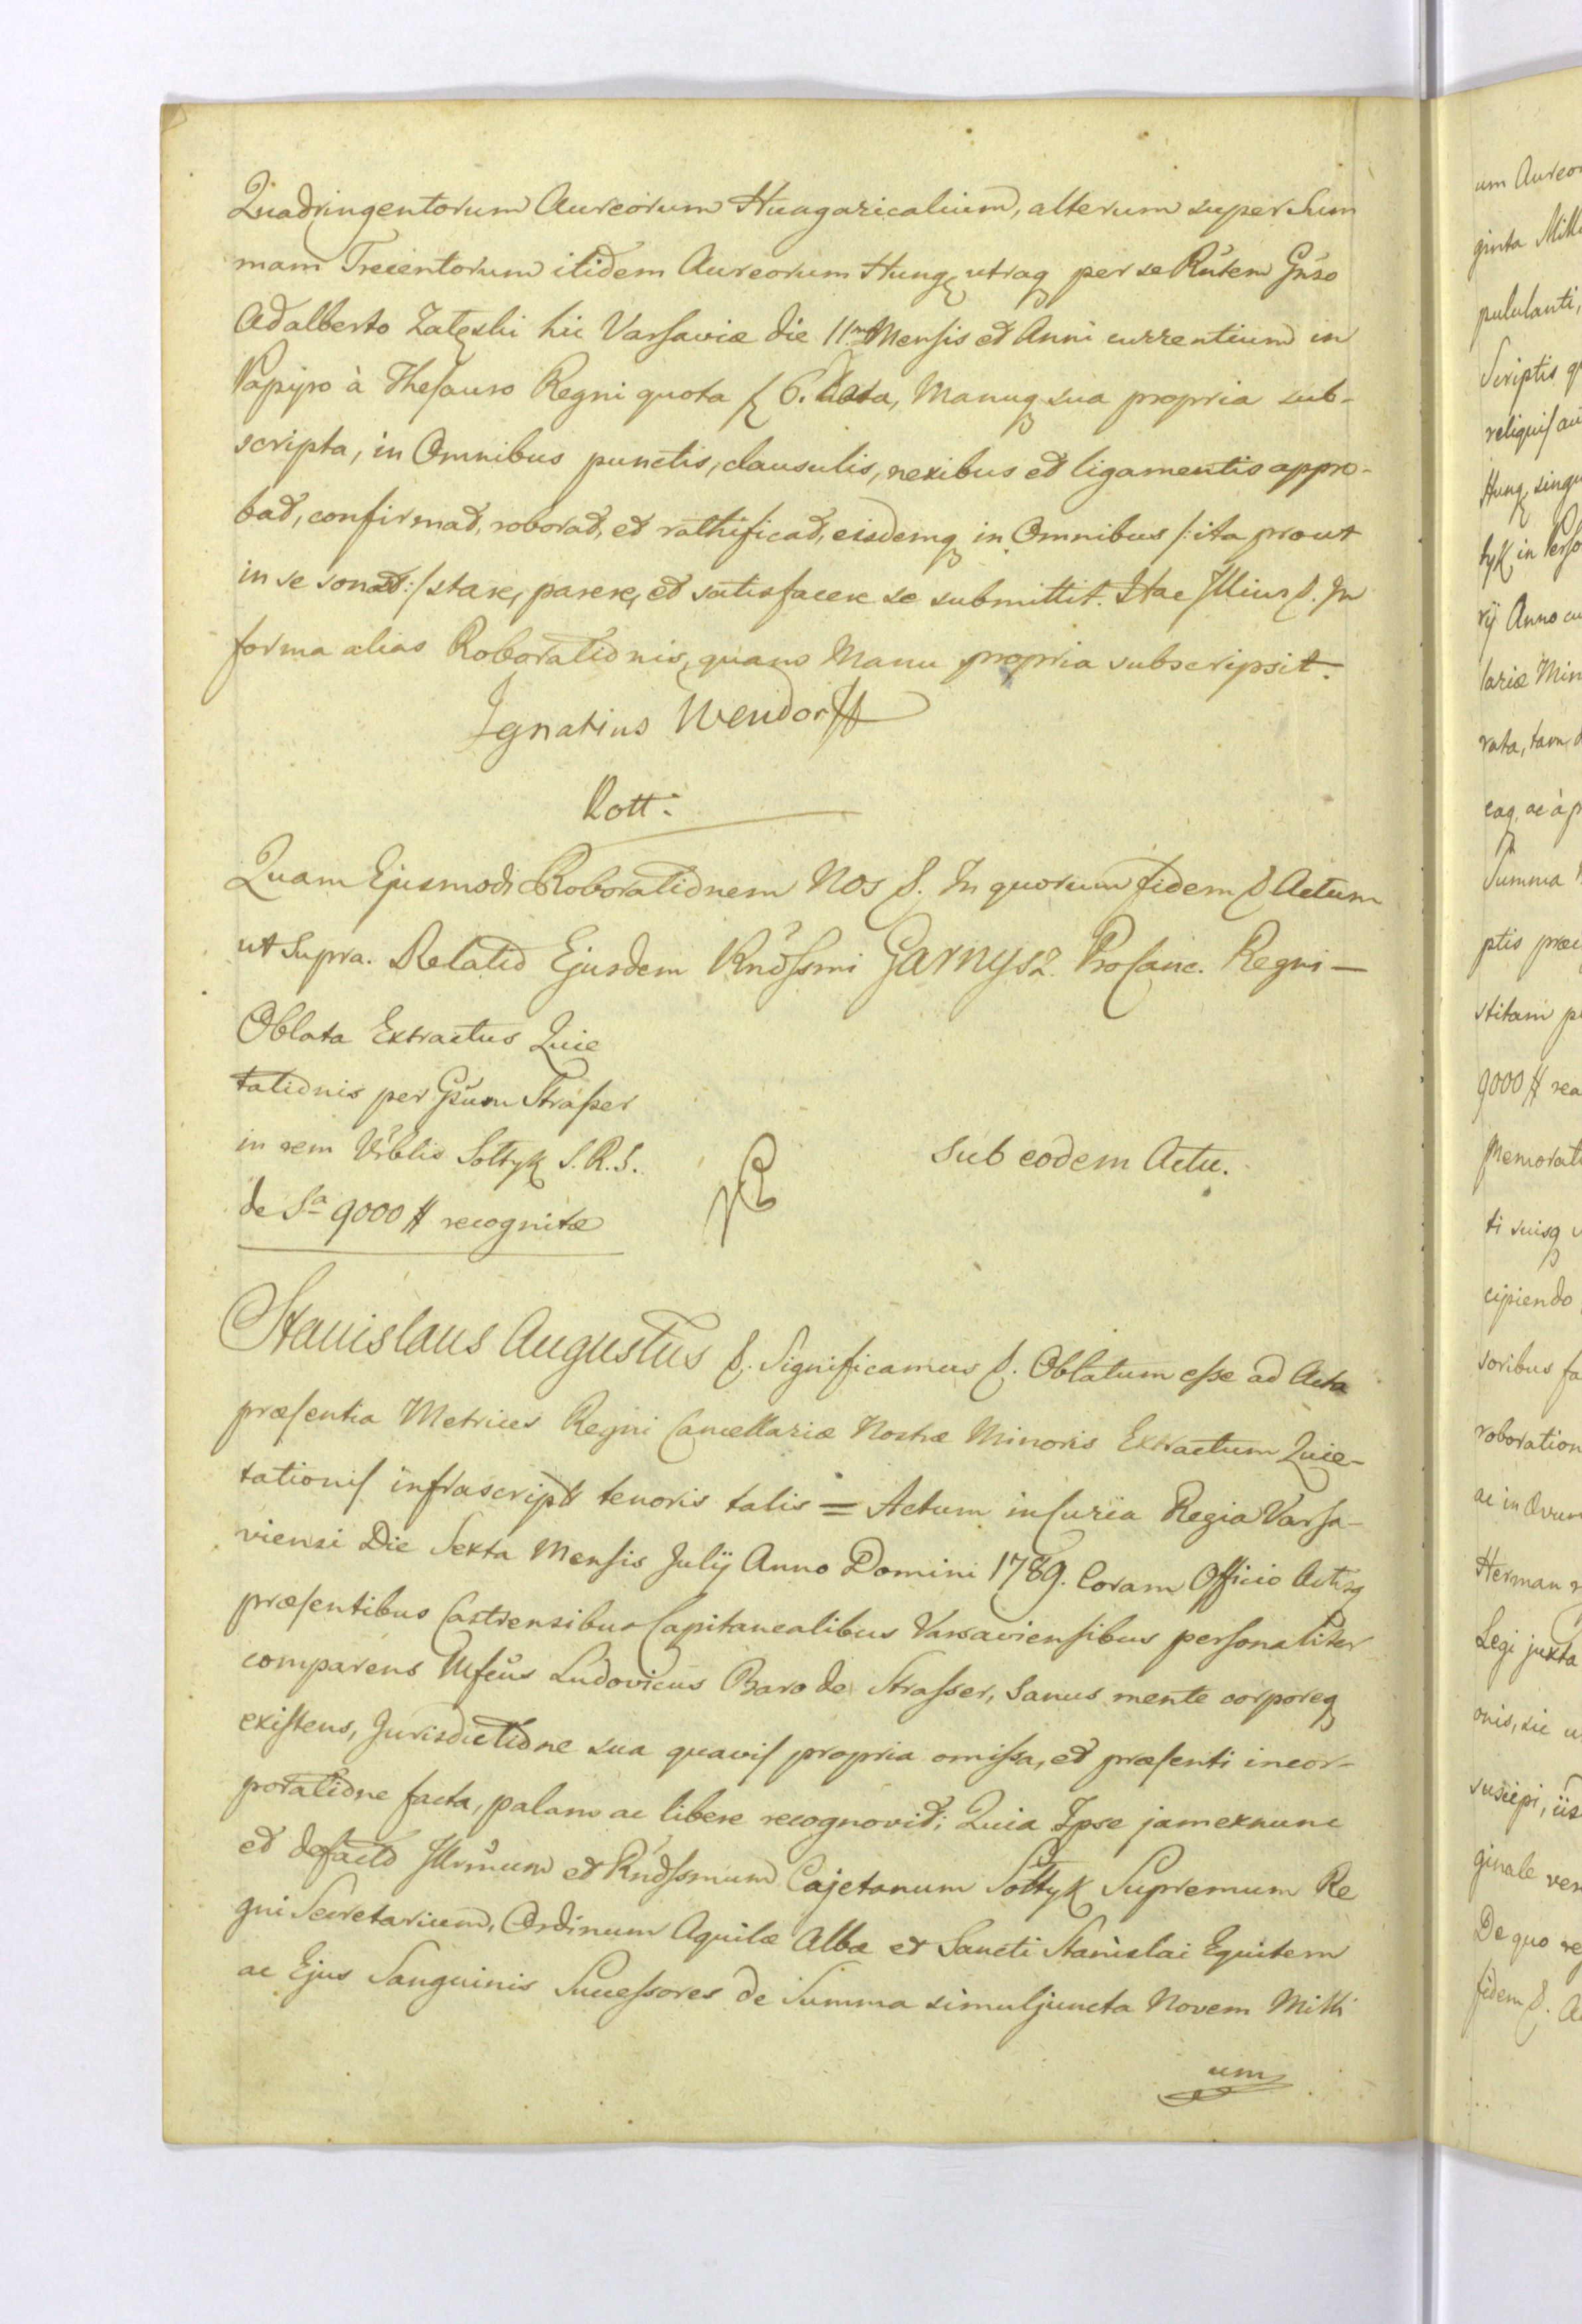 Quadringentorum Aureorum Hungaricalium, alterum super Sum
mam Trecentorum itidem Aureorum Hung. utraq per se Rñtem Gñso
Adalberto Załęski hic Varsaviæ die 11ma Mensis et Anni currentium in
Papÿro à Thesauro Regni quota f 6. data, Manuq sua propria sub-
scripta, in Omnibus punctis, clausulis, nexibus et ligamentis appro-
bat, confirmat, roborat, et rathificat, eisdemq in Omnibus /: ita prout
in se sonat :/ stare, parere, et satisfacere se submittit. Hac Illius &. In
forma alias Roborationis, quam Manu propria subscripsit.
Ignatius Wendorff
Rott:
Quam Ejusmodi Roborationem Nos &. In quorum fidem & Actum
ut Supra. Relatio Ejusdem Rndssmi Garnysz. ProCanc. Regni —
Oblata Extractus Quie
tationis per Gsum Strasser
in rem Vrblis Sołtyk S. R. S.
de Sa 9000 # recognitæ
Sub eodem Actu.
Stanislaus Augustus &. Significamus &. Oblatum esse ad Acta
præsentia Metrices Regni Cancellariæ Nostræ Minoris Extractum Quie-
tationis infrascripti tenoris talis = Actum in Curia Regia Varsa-
viensi Die Sexta Mensis Julÿ Anno Domini 1789. Coram Officio Actisq
præsentibus Castrensibus Capitanealibus Varsaviensibus personaliter
comparens Mfcus Ludovicus Baro de Strasser, Sanus mente corporeq
existens, Jurisdictione sua quavis propria omissa, et præsenti incor-
poratione facta, palam ac libere recognovit; Quia Ipse jam exnunc
et defacto Illrmum et Rndssmum Cajetanum Sołtyk Supremum Re
gni Secretarium, Ordinum Aquilæ Albæ et Sancti Stanislai Equitem
ac Ejus Sanguinis Successores de Summa simuljuncta Novem Milli
um
um Aureor
ginta Mill
pululanti,
Scriptis q
reliquis au
Hung. singu
tyk, in Perso
rÿ Anno cu
lariæ Min
rata, tam d
eaq, ac à p
Summa
ptis præ
stitam p
9000 # rea
Memorat
ti suisq
cipiendo
soribus fa
roboration
ac in ævum
Herman
Legi juxta
onis, sic u
suscepi, iis
ginale ver
De quo re
fidem &. A